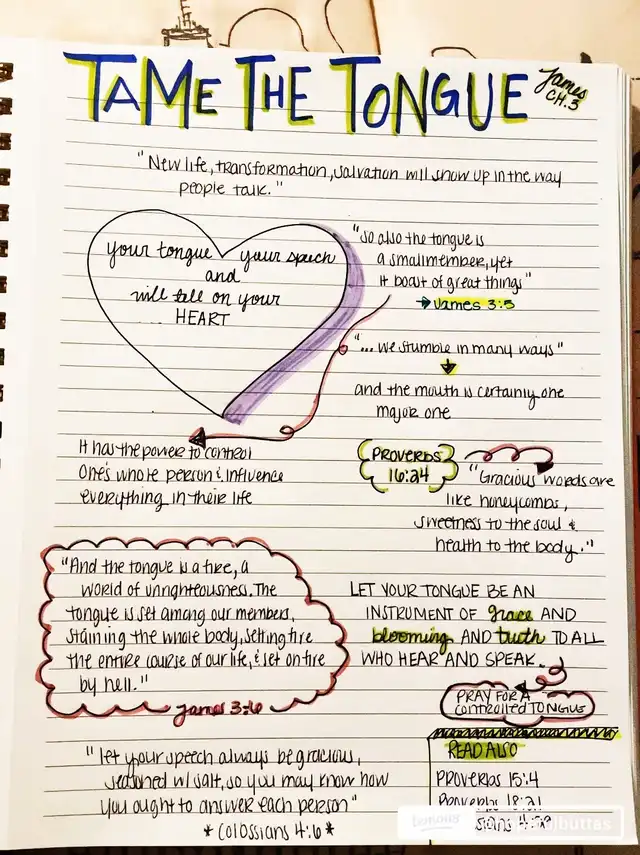 TAME THE TONGUE
James
CH.3
"New life, transformation, salvation will show up in the way
people talk."
your tongue your speech
and
will tell on your
HEART
"So also the tongue is
a small member, yet
it boast of great things"
James 3:5
"... we stumble in many ways"
and the mouth is certainly one
major one
It has the power to control
One's whole person & influence
everything in their life
PROVERBS
16:24
"Gracious words are
like honeycombs,
sweetness to the soul &
health to the body."
"And the tongue is a fire, a
world of unrighteousness. The
tongue is set among our members,
staining the whole body, setting fire
the entire course of our life, & set on fire
by hell."
James 3:6
LET YOUR TONGUE BE AN
INSTRUMENT OF grace AND
blooming AND truth TO ALL
WHO HEAR AND SPEAK.
PRAY FOR A
controlled TONGUE
"let your speech always be gracious,
seasoned w/ salt, so you may know how
you ought to answer each person"
*Colossians 4:6*
READ ALSO
Proverbs 15:4
Proverbs 18:21